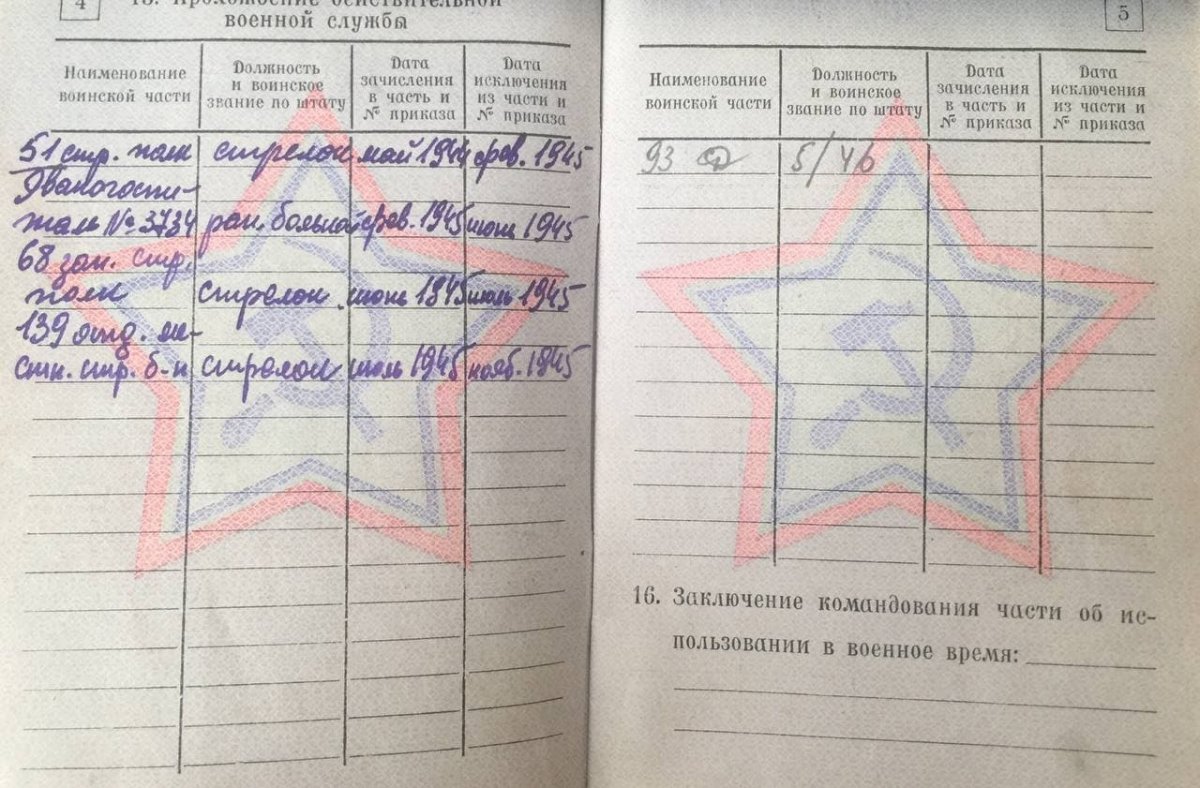 4
15. Прохождение действительной
военной службы
Наименование воинской части | Должность и воинское звание по штату | Дата зачисления в часть и № приказа | Дата исключения из части и № приказа
51 стр. полк | стрелок | май 1944 | фев. 1945
Эвакогоспи-
таль № 3734 | ран. больной | фев. 1945 | июнь 1945
68 зап. стр.
полк | стрелок | июнь 1945 | июль 1945
139 отд. ме-
стн. стр. б-н | стрелок | июль 1945 | нояб. 1945
5
Наименование воинской части | Должность и воинское звание по штату | Дата зачисления в часть и № приказа | Дата исключения из части и № приказа
93 | 5/46
16. Заключение командования части об ис-
пользовании в военное время: